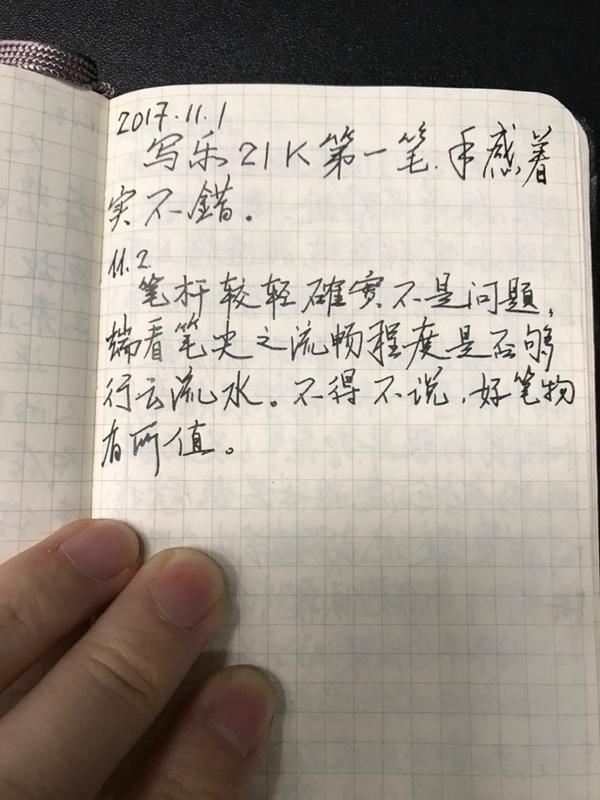 2017.11.1
写乐21K第一笔.手感着
实不错.
11.2
笔杆较轻確实不是问题,
端看笔尖之流畅程度是否够
行云流水。不得不说,好笔物
有所值。